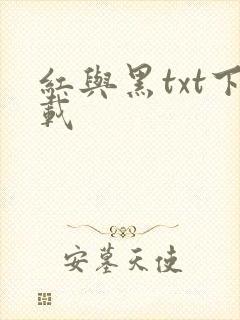 紅與黑txt下
載
安墓天使